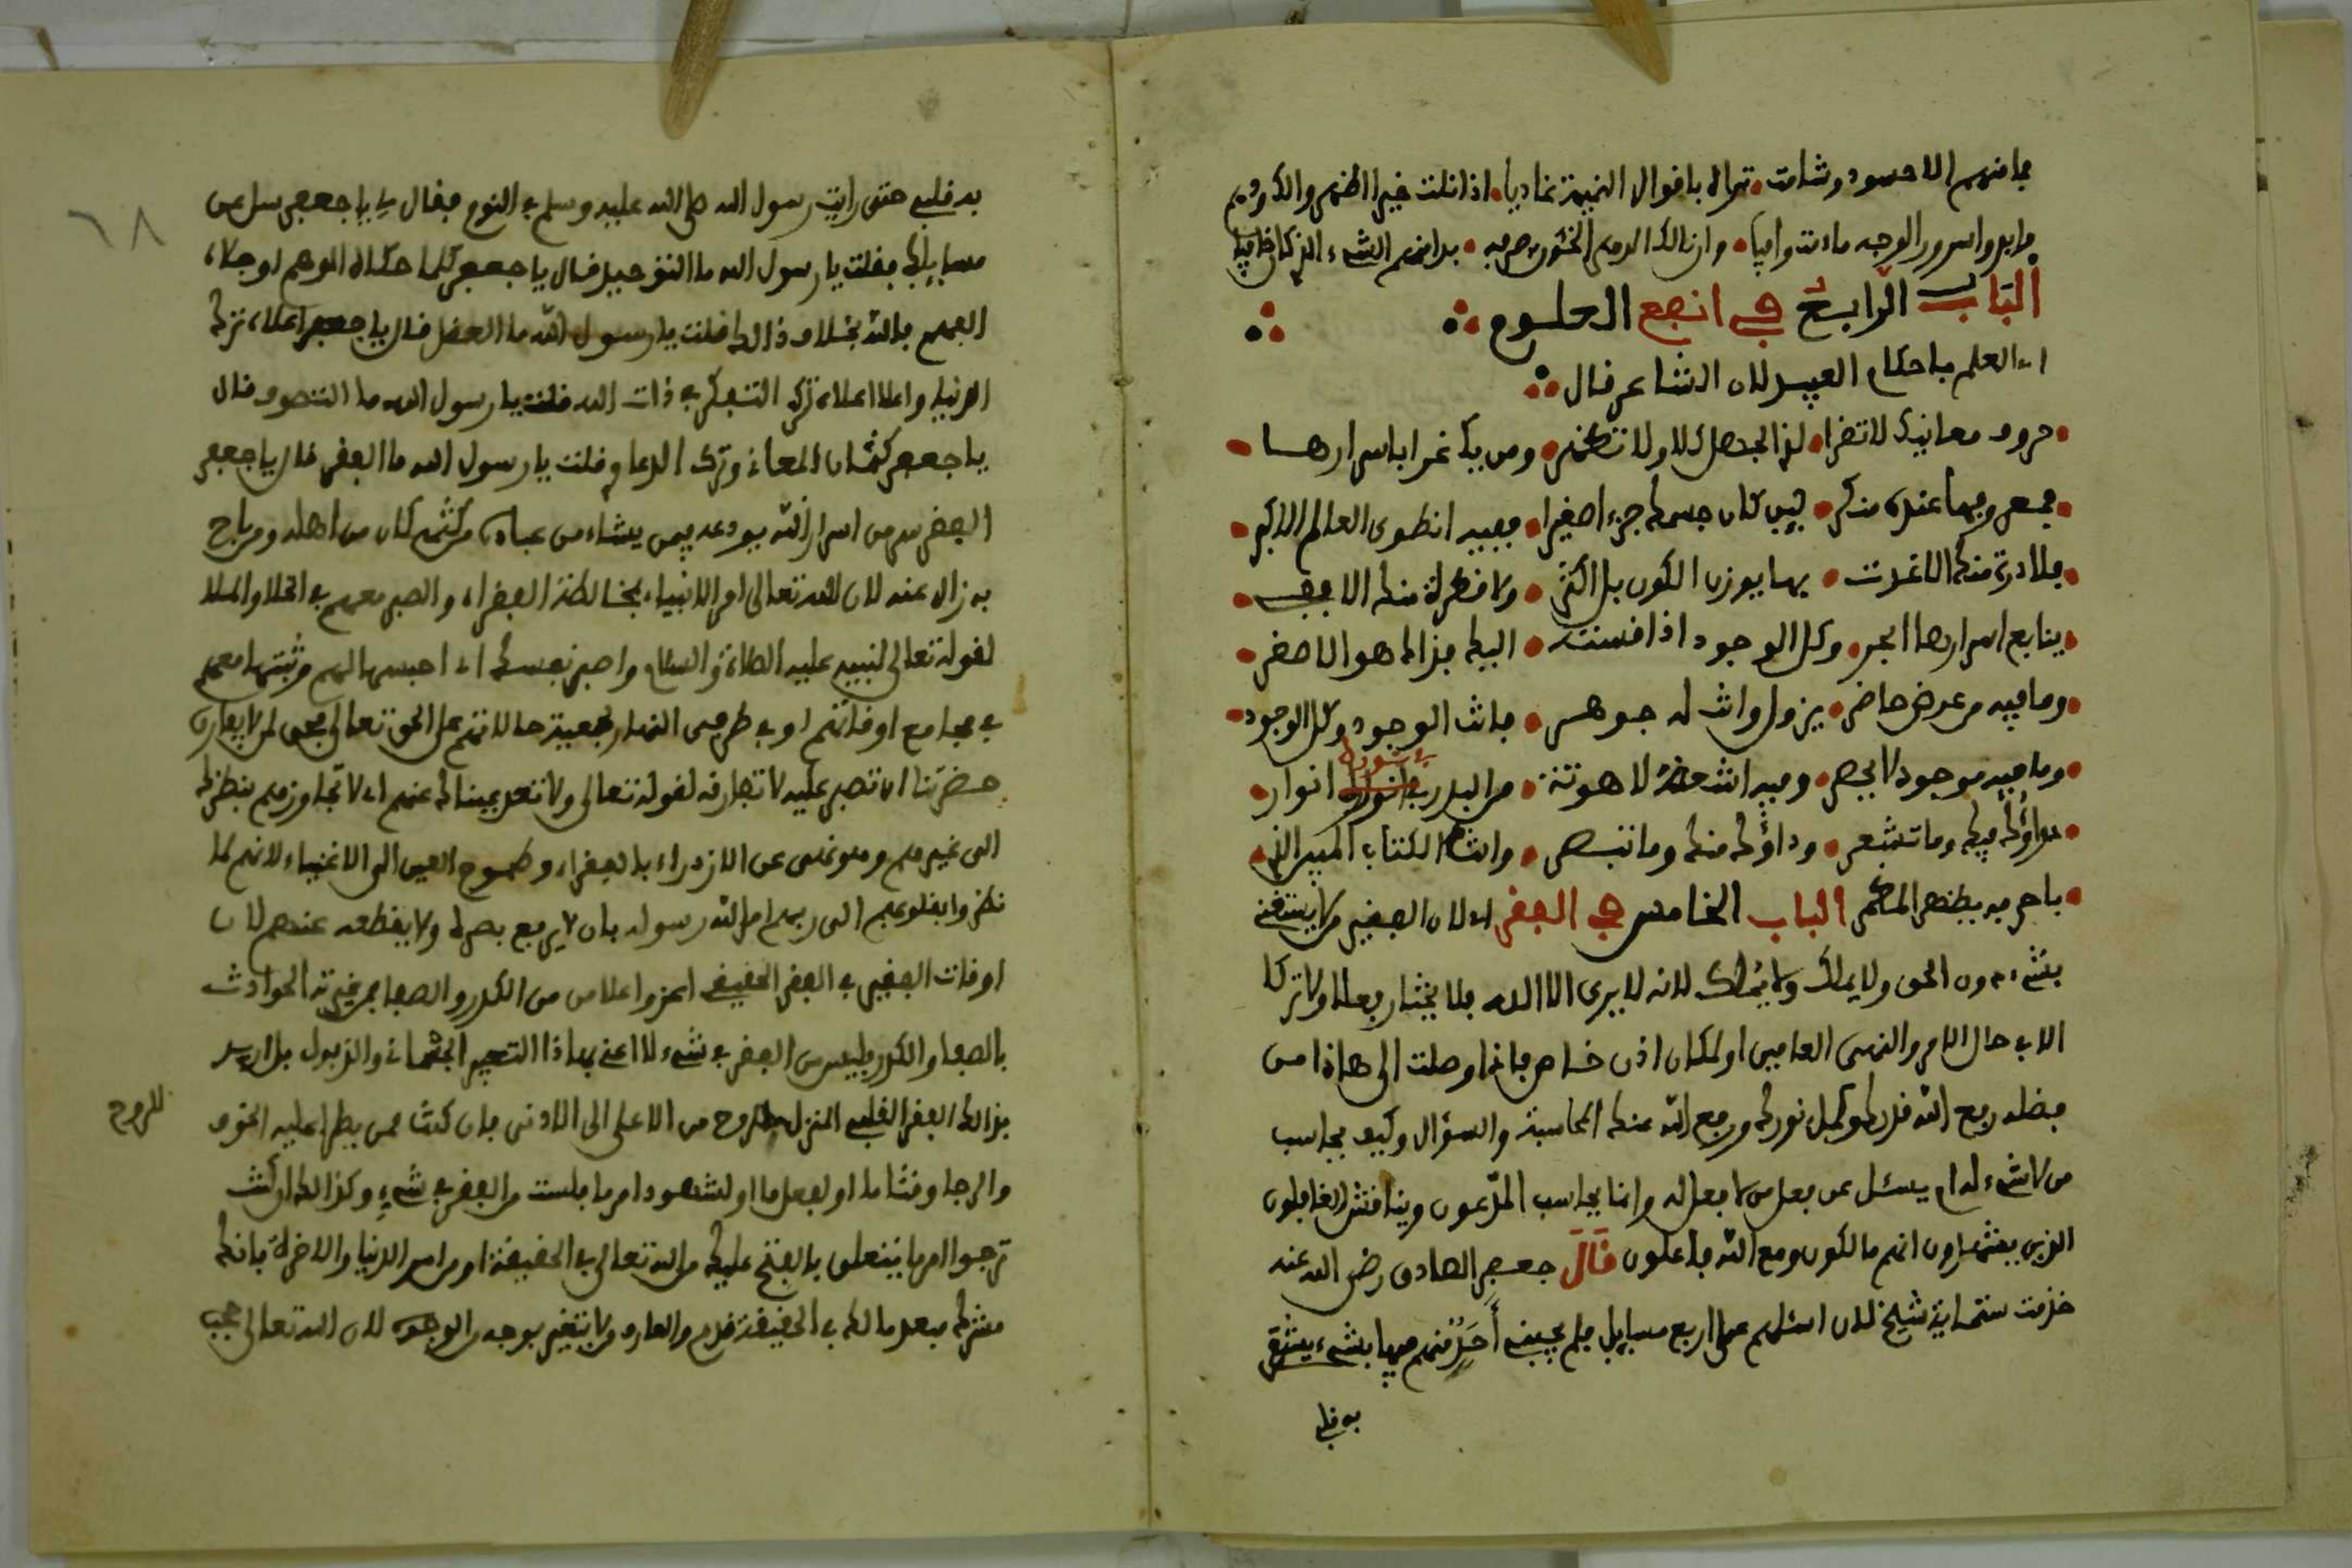 فما منهم الا حسود وشامت • تراه باقوال النميمة غاديا • اذا نلت خيرا اظهروا الكره فيهم
ما بدوا سرور الوجه مادمت وافيا • وان نالك الدهر الخئون بصرفه • بدا منهم الشيء الذي كان خافيا
الباب الرابع في انفع العلوم
اي العلم باحكام العبيد لان الشاعر قال
• حروف معانيك لا تقرا • لذي الجهل كلا ولا تظهر • ومن يك غرا باسرارها •
• فمعروفها عنده منكر • لئن كان جسمك جرءا صغيرا • ففيه انطوى العالم الاكبر •
• فلا ذرة منك الا غدت • بها يوزن الكون بل اكثر • ولا قطرة منك الا ففي •
• ينابع اسرارها ابحر • وكل الوجود اذا قسته • اليك فذاك هو الاصغر •
• وما فيه من عرض حاضر • يزول وانت له جوهر • فانت الوجود وكل الوجود •
• وما فيه موجود لا يحصر • وفيه انت حضرة لاهوته • من البدر في نوره انوار •
• دواؤك فيك وما تشعر • وداؤك منك وما تبصر • وانت الكتاب المبين الذي •
• باحرفه يظهر المضمر الباب الخامس في الفقر اي لان الفقير من لا يستغني
بشيء دون الحق ولا يملك ولا يُملك لانه لا يرى الا الله فلا يختار فعلا ولا تركا
الا في حال الامر والنهي العامين او لمكان اذن خاص فاذا وصلت الى هاذا من
فضله رفع الله قدرك وكمل نورك ورفع الله عنك المحاسبة والسؤال وكيف يحاسب
من لا شيء له ام يسئل عن فعل من لا فعل له وانما يحاسب المدّعون ويناقش الغافلون
الذين يعتقدون انهم مالكون ومع الله فاعلون قَالَ جعفر الصادق رضي الله عنه
خدمت ستماية شيخ لان اسئلهم عن اربع مسايل فلم يجبني أَحَدٌ منهم فيها بشيء يشتفي
به قلبي
به قلبي حتى رايت رسول الله صلى الله عليه وسلم في النوم فقال لي يا جعفر سل عن
مسايلك فقلت يا رسول الله ما التوحيد قال يا جعفر كلما حكاه الوهم او جلاه
الفهم فالله بخلاف ذالك قلت يا رسول الله ما العقل قال يا جعفر اعلاه ترك
الدنيا واعلا اعلاه ترك التفكر في ذات الله قلت يا رسول الله ما التصوف قال
يا جعفر كتمان المعاني وترك الدعاوي قلت يا رسول الله ما الفقر قال يا جعفر
الفقر سر من اسرار الله يودعه فيمن يشاء من عباده فمن كتمه كان من اهله ومن باح
به زال عنه لان الله تعالى امر الانبياء بمخالطة الفقراء والصبر معهم في الخلا والملا
لقوله تعالى لنبيه عليه الصلاة والسلام واصبر نفسك اي احبسها لهم وثبتها معهم
في مجامع اوقاتهم او في طرفي النهار لجمعية حالاتهم على الحق تعالى فحق لمن لا يفارق
حضرتنا ان تصبر عليه لا تفارقه لقوله تعالى ولا تعد عيناك عنهم اي لا تجاوزهم بنظرك
الى غيرهم وهو نهي عن الازدراء بالفقراء وطموح العين الى الاغنياء لانهم لما
نظروا بقلوبهم الى ربهم امر الله رسوله بان لا يرفع بصره ولا يقطعه عنهم لان
اوقات الفقير في الفقر الحقيقي اعز واعلا من من الكدر والصفا فمن غيرته الحوادث
بالصفا والكدر فليس من الفقر في شيء لا اعني بهاذا التغيير الجثماني والذبول بل اريد
بذالك الفقر القلبي المنزل للروح من الاعلى الى الادنى فان كنت ممن يطرا عليه الخوف
والرجا وقتا ما او لفعل ما او لشهود امر ما فلست من الفقر في شيءٍ وكذالك ان كنت
ترجوا امرا ما يتعلق بالفتح عليك من الله تعالى في الحقيقة او من امور الدنيا والاخرة فانك
مشرك فبعد مالك في الحقيقة قدم والعارف لا يتغير بوجه من الوجوه لان الله تعالى يحب
للروح
٦٨